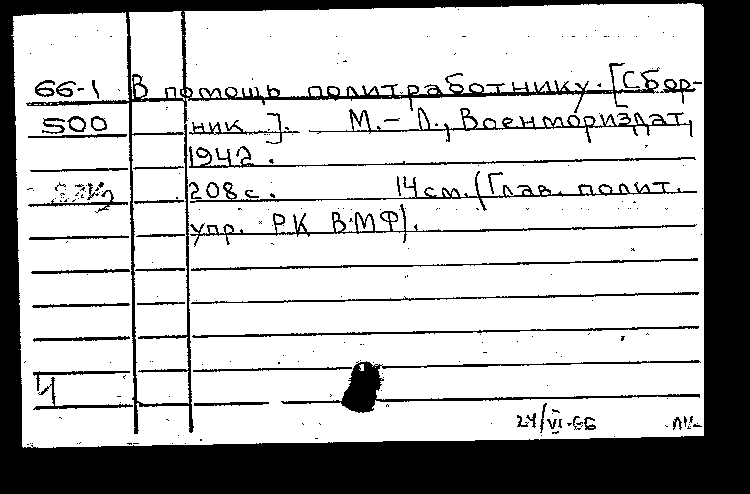 66-1 В помощь политработнику. [Сбор-
500 ник]. М.-Л., Военмориздат,
1942.
208 с. 14 см. (Глав. полит.
упр. РК ВМФ).
Ч
24/VI-66